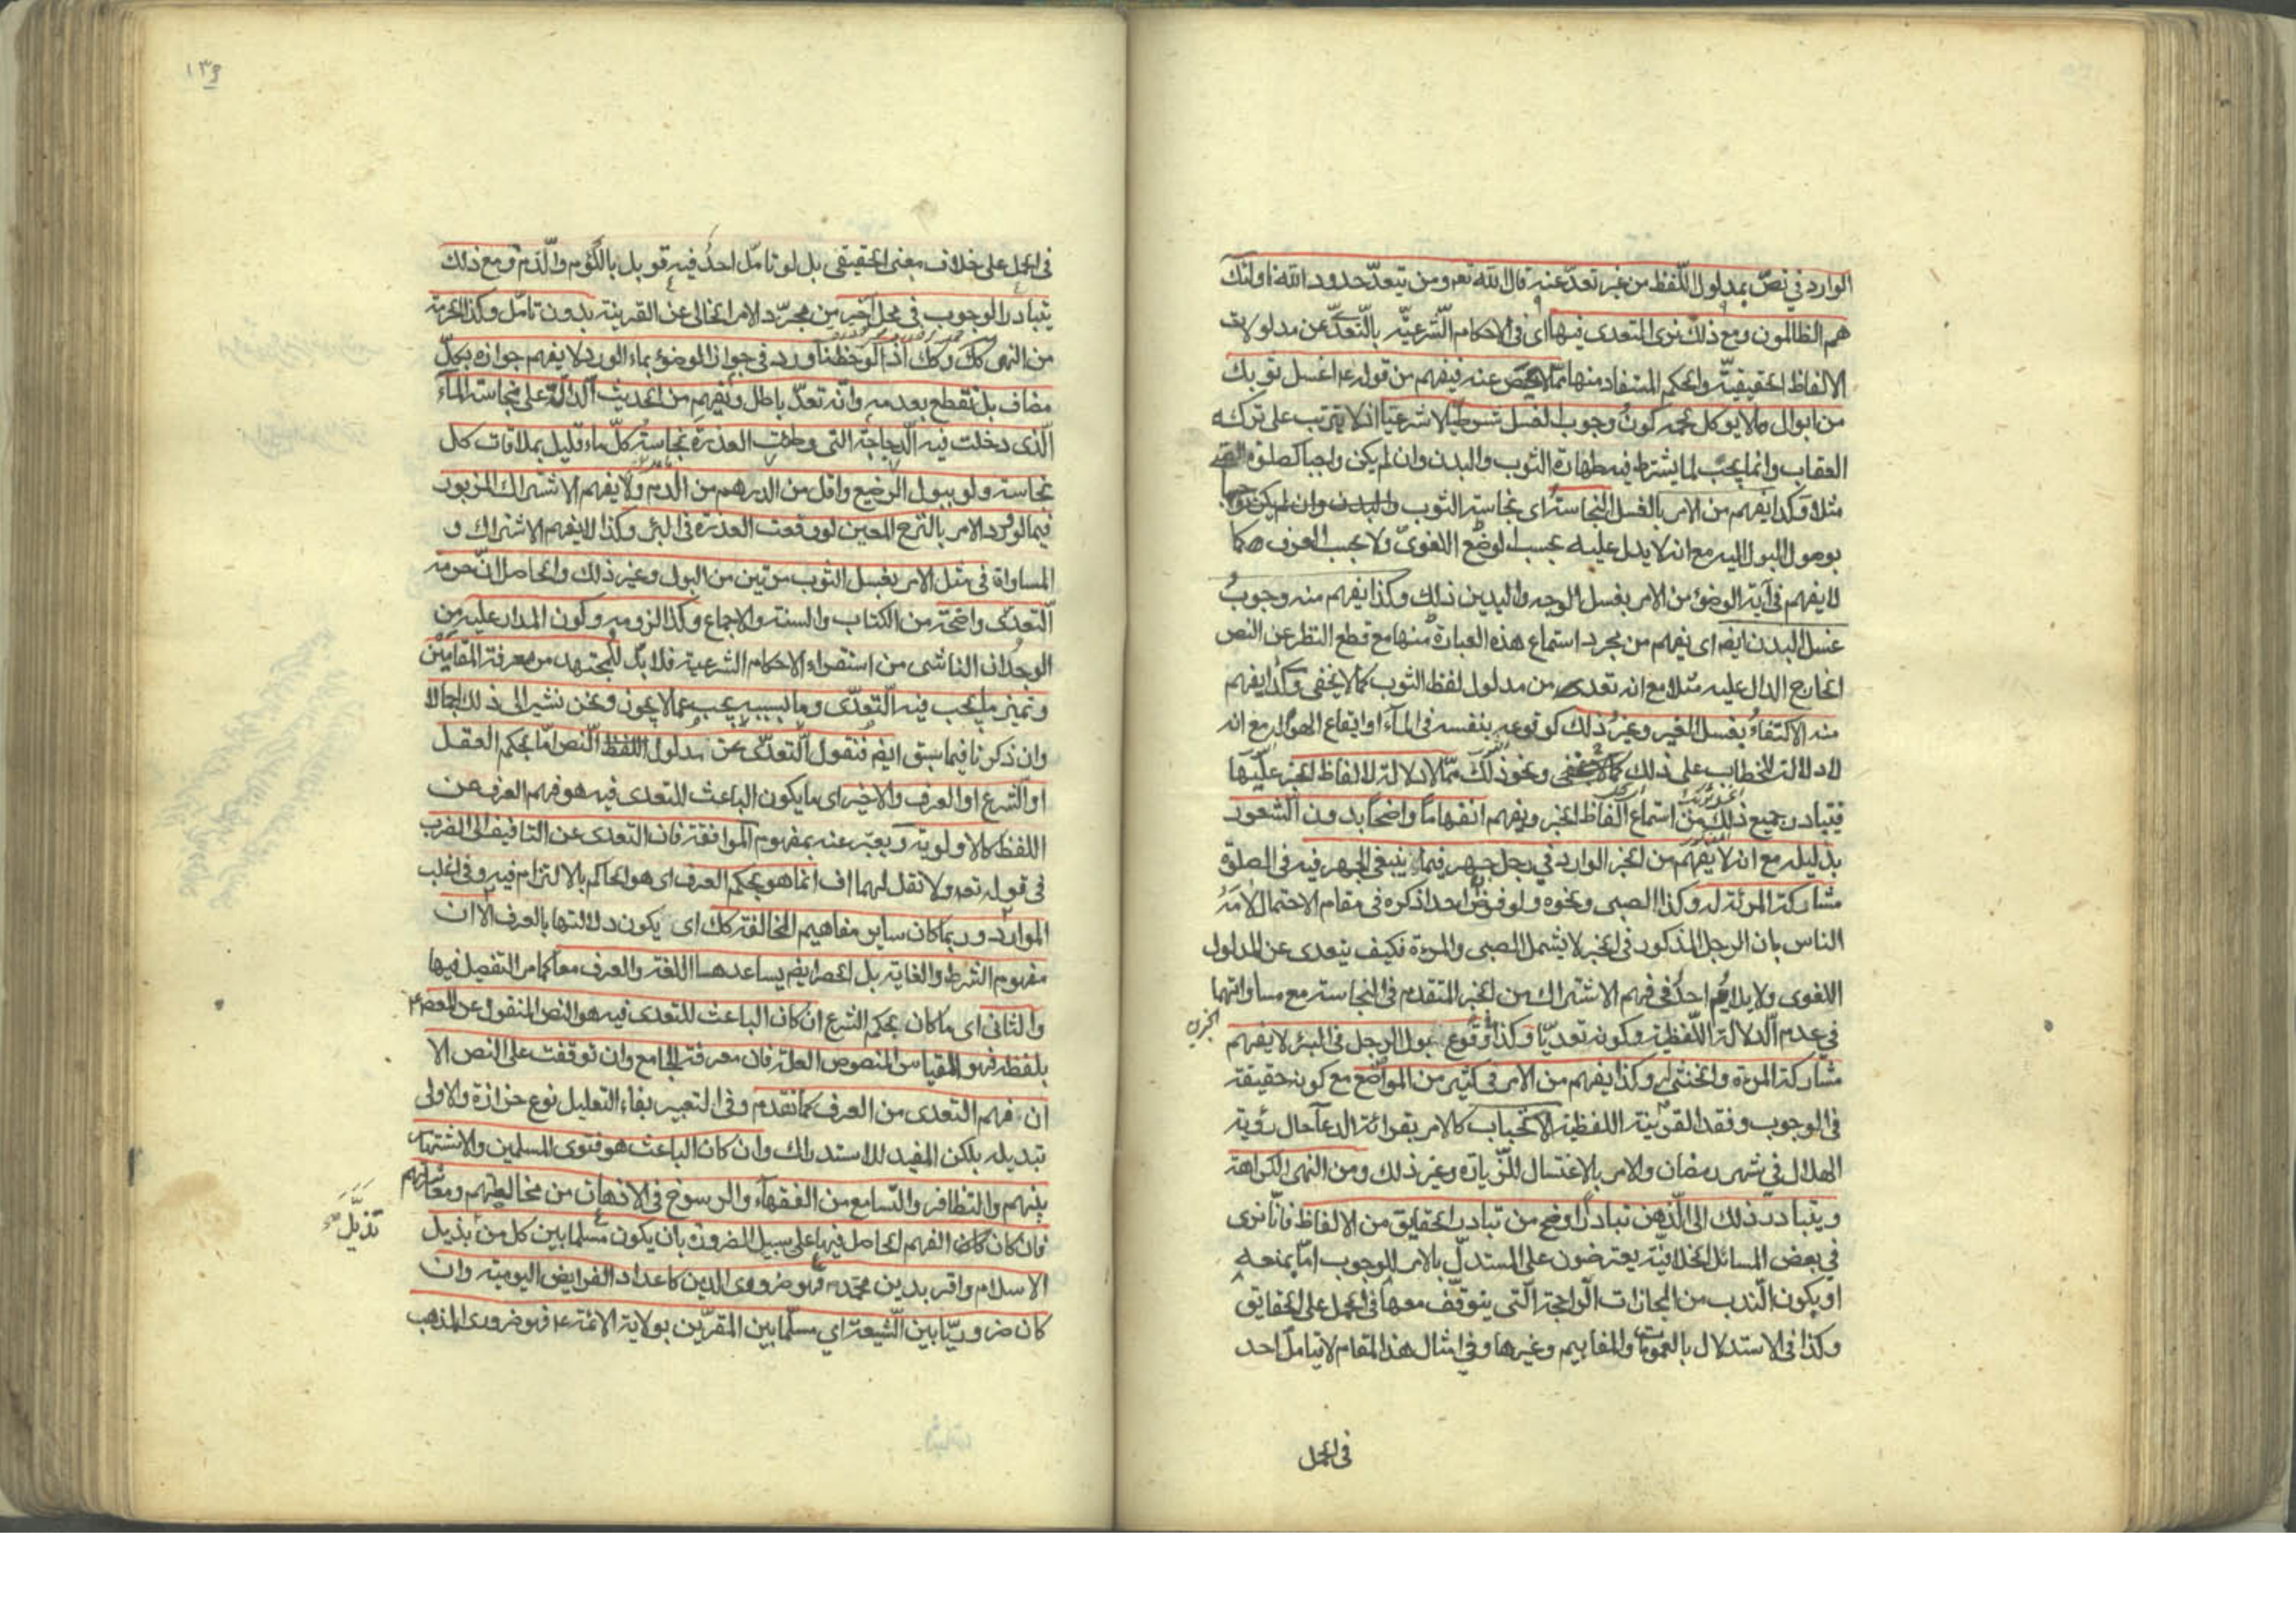 الوارد في نصّ بمدلول اللّفظ من غير تعدّ عنه قال الله تعر ومن يتعدّ حدود الله اولئك
هم الظالمون ومع ذلك نرى التعدى فيها اى فى الاحكام الشّرعيّه بالتّعدّى عن مدلولات
الالفاظ الحقيقيّة والحكم المستفاد منها ممّا لا يحصى عنه فيفهم من قوله ع اغسل ثوبك
من ابوال ما لا يوكل لحمه كون وجوب الغسل شرطيّا لا شرعيّا اذ لا يترتب على تركه
العقاب وانما يجب لما يشترط فيه طهارة الثوب والبدن وان لم يكن واجبا كصلوة
مثلا وكذا يفهم من الامر بالغسل النجاسة اى نجاسة الثوب والبدن وان لم يكن
بوصول البول اليه مع انه لا يدل عليه بحسب الوضع اللغوىّ ولا بحسب العرف كما
لا يفهم فى آية الوضوء من الامر بغسل الوجه واليدين ذلك وكذا يفهم منه وجوب
غسل البدن ايضم اى يفهم من مجرد استماع هذه العبارة منها مع قطع النظر عن النص
الخارج الدال عليه مثلا مع انه تعدى من مدلول لفظ الثوب كما لا يخفى وكذا يفهم
منه الاكتفاء بغسل الغير وغير ذلك كوقوعه بنفسه فى الماء او ايقاع الهواء مع انه
لا دلالة للخطاب على ذلك كما لا يخفى ونحو ذلك ممّا لا دلالة لالفاظ الخبر عليها
فيتبادر جميع ذلك من استماع الفاظ الخبر ويفهم انفهاماً واضحاً بدون الشعور
بدليله مع انه لا يفهم من الخبر الوارد فى رجل جهر فيما ينبغى الجهر فيه فى الصلوة
مشاركة المرئة له وكذا الصبى ونحوه ولو فرض احد اذكره فى مقام الاحتمال لامه
الناس بان الرجل المذكور فى الخبر لا يشمل الصبى والمرءة فكيف يتعدى عن المدلول
اللغوى ولا يلام احد فى فهم الاشتراك من الخبر المتقدم فى النجاسة مع مساواتهما
فى عدم الدلالة اللّفظية وكونه تعديّا وكذا وقوع بول الرجل فى البئر لا يفهم
مشاركة المرءة والخنثى له وكذا يفهم من الامر فى كثير من المواضع مع كونه حقيقة
فى الوجوب وفقد القرينة اللفظية الاستحباب كالامر بقرائة الدعآ حال رؤية
الهلال فى شهر رمضان والامر بالاغتسال للزيارة وغير ذلك ومن النهى الكراهة
ويتبادر ذلك الى الذّهن تبادرًا اوضح من تبادر الحقايق من الالفاظ فانّا نرى
فى بعض المسائل الخلافيّة يعترضون على المستدلّ بالامر للوجوب امّا بمنعه
او يكون الندب من المجازات الراجحة التى يتوقف معها فى الحمل على الحقايق
وكذا فى الاستدلال بالعمومات والمفاهيم وغيرها وفى امثال هذا المقام لا يتامل احد
فى الحمل
١٣٩
فى الحمل على خلاف معنى الحقيقى بل لو تامّل احد فيه قوبل باللّؤم والّذم ومع ذلك
يتبادر الوجوب فى محل آخر من مجرّد الامر الخالى عن القرينة بدون تامل وكذا الحرمة
من النهى كك وكك اذا لو حظنا ورد فى جواز الوضوء بماء الورد لا يفهم جوازه بكلّ
مضاف بل نقطع بعدمه وانّه تعدّ باطل ويفهم من الحديث الدالّة على نجاسة الماء
الّذى دخلت فيه الدجاجة التى وطئت العذرة نجاسة كلّ ماء قليل بملاقات كل
نجاسة ولو ببول الرضيع واقل من الدرهم من الدم ولا يفهم الاشتراك المزبور
فيما لو ورد الامر بالنزح المعين لو وقعت العذرة فى البئر وكذا لا يفهم الاشتراك و
المساواة فى مثل الامر بغسل الثوب مرتين من البول وغير ذلك والحاصل انّ حرمة
التعدّى واضحة من الكتاب والسنة والاجماع وكذا لزومه وكون المدار عليه من
الوجدان الناشى من استقراء الاحكام الشرعية فلا بدّ للمجتهد من معرفة المقامين
وتميز ما يجب فيه التّعدّى وما بسببه يجب عما لا يجوز ونحن نشير الى ذلك اجمالا
وان ذكرنا فيما سبق ايضم فنقول التعدّى عن مدلول اللفظ النّص امّا بحكم العقل
او الّشرع او العرف والاخير اى ما يكون الباعث للتعدى فيه هو فهم العرف عن
اللفظ كالاولوية ويعبّر عنه بمفهوم الموافقة فان التعدى عن التافيف الى الضرب
فى قوله تعر ولا تقل لهما اف انّما هو بحكم العرف اى هو الحاكم بالالتزام فيه وفى اغلب
الموارد وربما كان ساير مفاهيم المخالفة كك اى يكون دلالتها بالعرف الا ان
مفهوم الشرط والغاية بل الحصر ايضم يساعدهما اللغة والعرف معا كما مر التفصيل فيها
والثانى اى ما كان بحكم الشرع ان كان الباعث للتعدى فيه هو النص المنقول عن المعصوم ع
بلفظه فهو القياس المنصوص العلة فان معرفة الجامع وان توقفت على النص الا
ان فهم التعدى من العرف كما تقدم وفى التعبير بفاء التعليل نوع حزازة والاولى
تبديله بلكن المفيد للاستدراك وان كان الباعث هو فتوى المسلمين والاشتهار
بينهم والتظافر والتسامع من الفقهاء والرسوخ فى الاذهان من مخالطتهم ومعاشرتهم
فان كان الفهم الحاصل فيها على سبيل الضرورة بان يكون مسلما بين كل من تذيل
تذيّل
الاسلام واقر بدين محمد ص فهو ضرورى الدين كاعداد الفرايض اليومية وان
كان ضروريّا بين الشّيعة اي مسلّما بين المقرّين بولاية الائمة ع فهو ضرورى المذهب